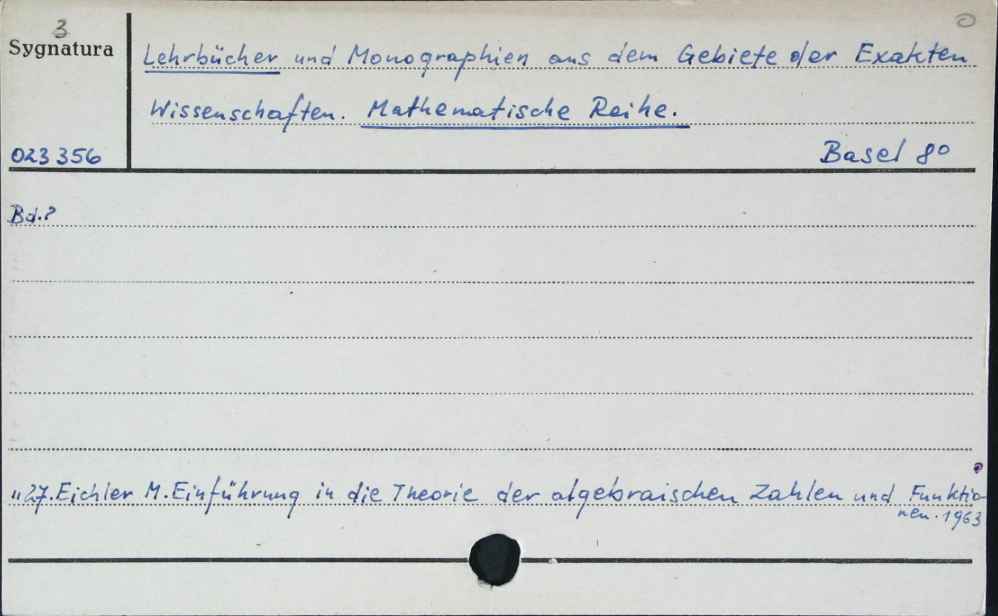 3
Sygnatura
023356
Lehrbücher und Monographien aus dem Gebiete der Exakten
Wissenschaften. Mathematische Reihe.
Basel 8°
Bd.?
"27. Eichler M. Einführung in die Theorie der algebraischen Zahlen und Funktio-
nen. 1963